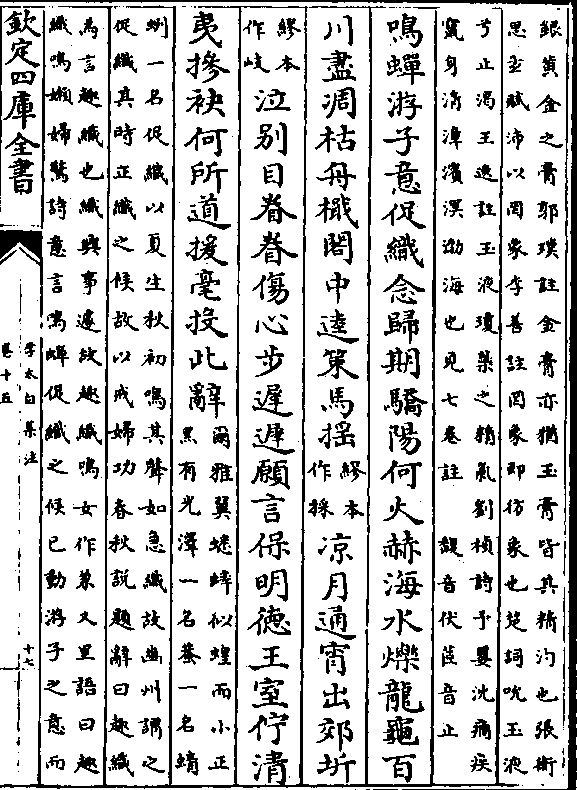 銀黄金之膏郭璞註金膏亦猶玉膏皆其精汋也張衡
思玄賦沛以罔象李善註罔象即彷象也楚詞吮玉液
兮止渴王逸註玉液瓊蘂之精氣劉楨詩予嬰沈痼疾
竄身清漳濱溟渤海也見七卷註 音伏 音止
鳴蟬游子意促織念歸期驕陽何火赫海水爍龍龜百
川盡凋枯舟檝閣中逵策馬揺繆本作採凉月通宵出郊圻
繆本作岐泣别目眷眷傷心步遲遲願言保明徳王室佇清
夷摻袂何所道援毫投此辭爾雅翼蟋蟀似蝗而小正
黒有光澤一名蛬一名蜻
蛚一名促織以夏生秋初鳴其聲如急織故幽州謂之
促織其時正織之候故以戒婦功春秋説題辭曰趣織
為言趣織也織興事遽故趣織鳴女作兼又里語曰趣
織鳴嬾婦驚詩意言鳴蟬促織之候已動游子之意而
欽定四庫全書
李太白集注
卷十五
十七